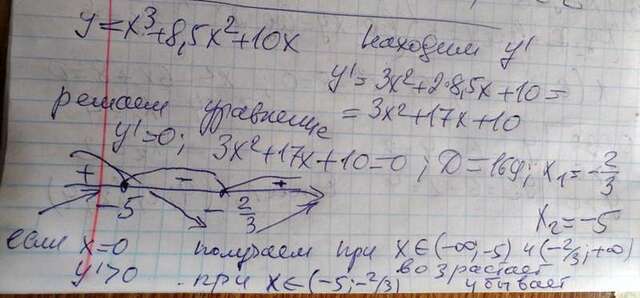 y=x³+8,5x²+10x находим y'
y'=3x²+2·8,5x+10=
решаем уравнение =3x²+17x+10
y'=0; 3x²+17x+10=0; D=169; x₁=-2/3
+ - +
-5 -2/3 x₂=-5
если x=0 получаем при x∈(-∞;-5) и (-2/3;+∞)
y'>0 возрастает
при x∈(-5;-2/3) убывает